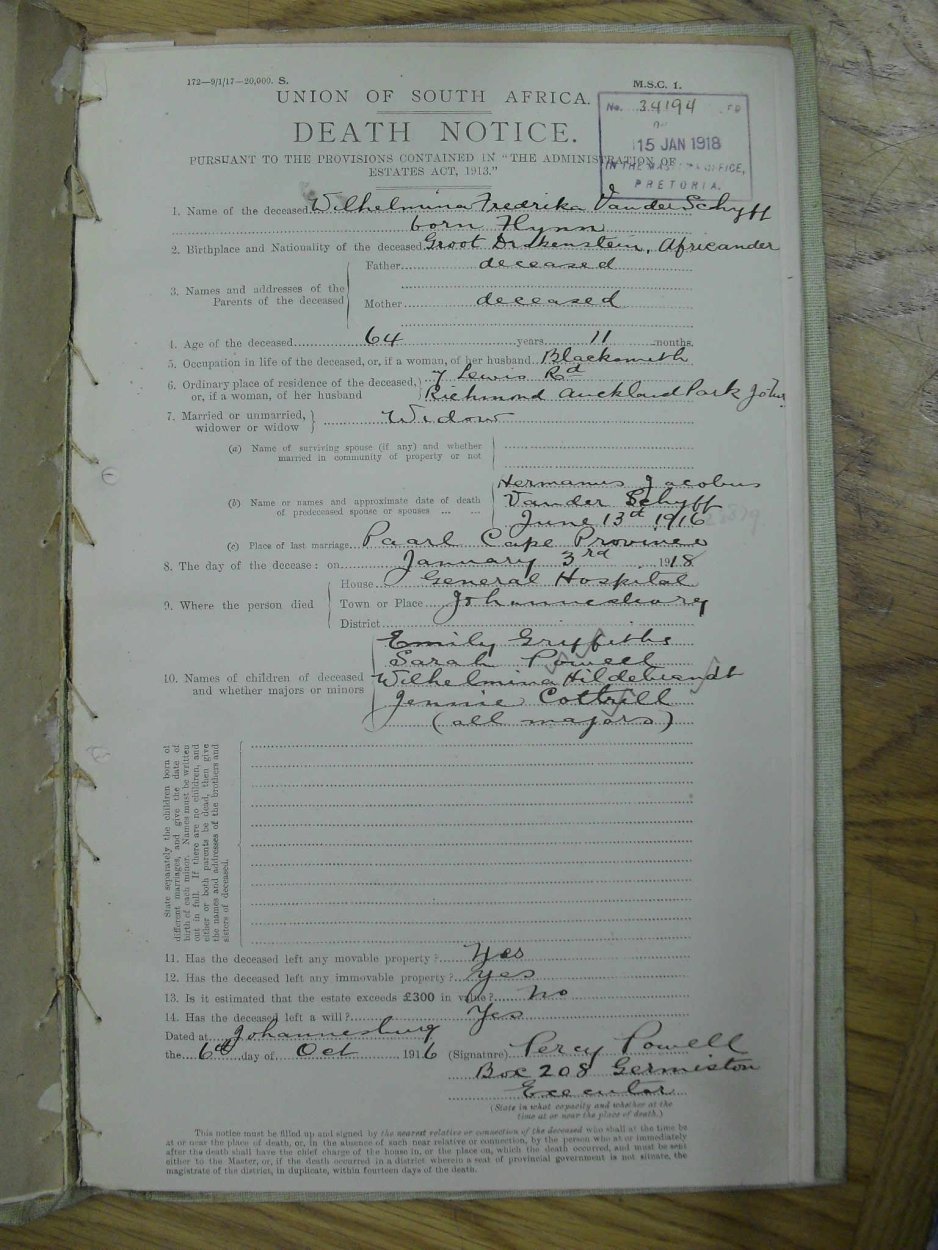 172—9/1/17—20,000. S.
M.S.C. 1.
UNION OF SOUTH AFRICA.
No. 34194
15 JAN 1918
IN THE MASTER'S OFFICE,
PRETORIA.
DEATH NOTICE.
PURSUANT TO THE PROVISIONS CONTAINED IN "THE ADMINISTRATION OF
ESTATES ACT, 1913."
1. Name of the deceased Wilhelmina Fredrika Van der Schyff
born Flynn
2. Birthplace and Nationality of the deceased Groot Drakenstein, Africander
3. Names and addresses of the Parents of the deceased
Father deceased
Mother deceased
4. Age of the deceased 64 years 11 months.
5. Occupation in life of the deceased, or, if a woman, of her husband Blacksmith
6. Ordinary place of residence of the deceased, 7 Lewis Rd
or, if a woman, of her husband Richmond Auckland Park Joh
7. Married or unmarried, widower or widow Widow
(a) Name of surviving spouse (if any) and whether
married in community of property or not
Hermanus Jacobus
(b) Name or names and approximate date of death Van der Schyff
of predeceased spouse or spouses ... ... June 13th 1916
(c) Place of last marriage Paarl Cape Province
8. The day of the decease: on January 3rd 1918
9. Where the person died
House General Hospital
Town or Place Johannesburg
District
Emily Griffiths
Sarah Powell
10. Names of children of deceased Wilhelmina Hildebrandt
and whether majors or minors Jennie Cottrill
(all majors)
State separately the children born of
different marriages, and give the date of
birth of each minor. Names must be written
out in full. If there are no children, and
either or both parents be dead, then give
the names and addresses of the brothers and
sisters of deceased.
11. Has the deceased left any movable property? Yes
12. Has the deceased left any immovable property? Yes
13. Is it estimated that the estate exceeds £300 in value? No
14. Has the deceased left a will? Yes
Dated at Johannesburg
the 6th day of Oct 1916 (Signature) Percy Powell
Box 208 Germiston
Executor
(State in what capacity and whether at the
time at or near the place of death.)
This notice must be filled up and signed by the nearest relative or connection of the deceased who shall at the time be
at or near the place of death, or, in the absence of such near relative or connection, by the person who at or immediately
after the death shall have the chief charge of the house in, or the place on, which the death occurred, and must be sent
either to the Master, or, if the death occurred in a district wherein a seat of provincial government is not situate, the
magistrate of the district, in duplicate, within fourteen days of the death.